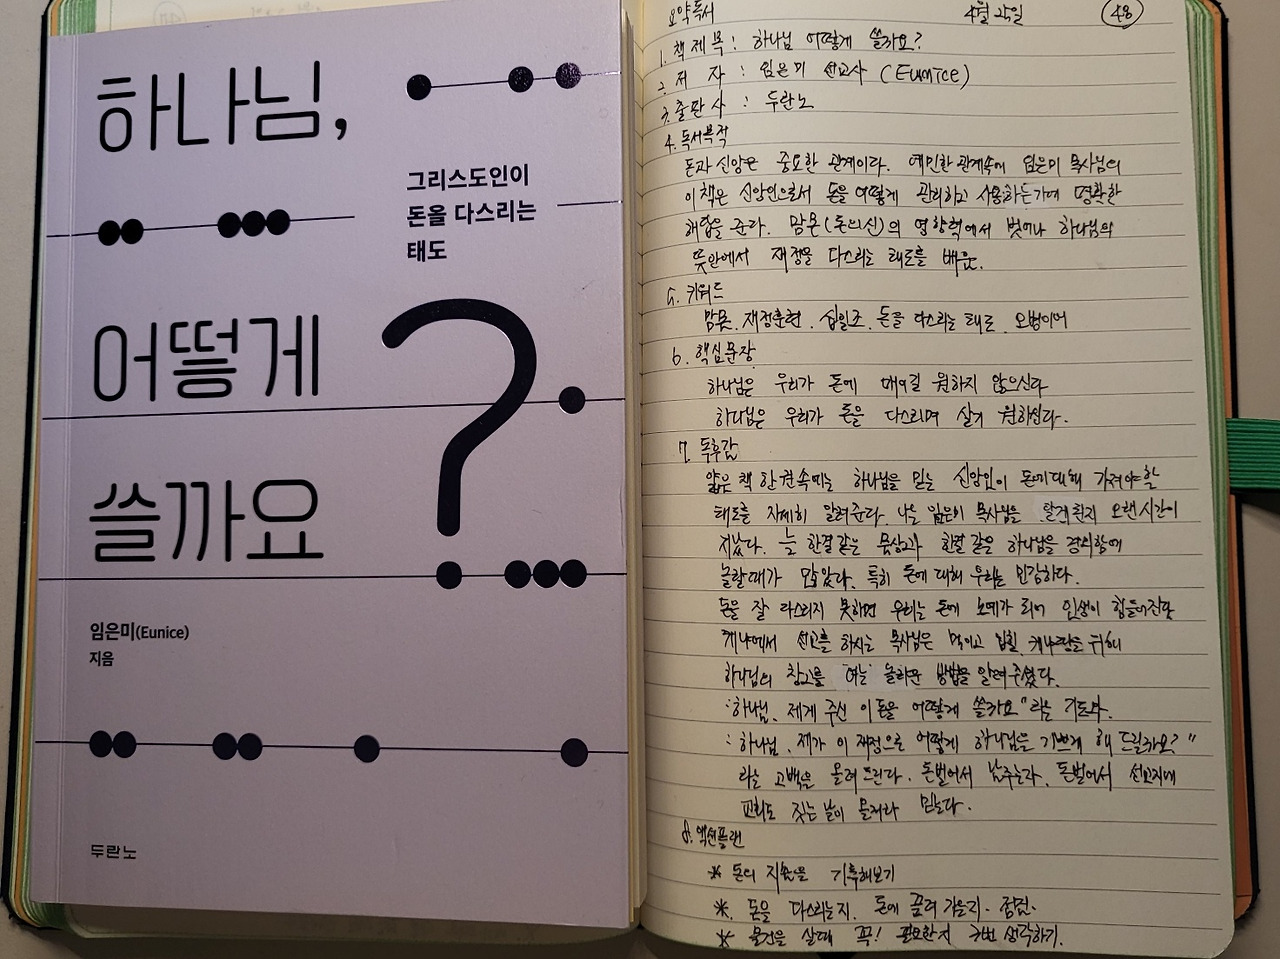 하나님,
그리스도인이
돈을 다스리는
태도
어떻게
?
쓸까요
임은미(Eunice)
지음
두란노
요약독서 4월 25일 48
1. 책 제목 : 하나님 어떻게 쓸까요?
2. 저 자 : 임은미 선교사 (Eunice)
3. 출판사 : 두란노
4. 독서목적
돈과 신앙은 중요한 관계이다. 예민한 관계속에 임은미 목사님의
이 책은 신앙인으로서 돈을 어떻게 관리하고 사용하는가에 명확한
해답을 준다. 맘몬(돈의신)의 영향력에서 벗어나 하나님의
뜻안에서 재정을 다스리는 태도를 배운.
5. 키워드
맘몬. 재정훈련. 십일조. 돈을 다스리는 태도. 오병이어
6. 핵심문장
하나님은 우리가 돈에 매여길 원하지 않으신다
하나님은 우리가 돈을 다스리며 살기 원하신다.
7. 독후감
얇은 책 한권속에는 하나님을 믿는 신앙인이 돈에대해 가져야할
태도를 자세히 알려준다. 나는 임은미 목사님을 알게된지 오랜시간이
지났다. 늘 한결같은 묵상과 한결 같은 하나님을 경외함에
놀랄때가 많았다. 특히 돈에 대해 우리는 민감하다.
돈을 잘 다스리지 못하면 우리는 돈에 노예가 되어 인생이 힘들어진다
케냐에서 선교를 하시는 목사님은 먹이고 입힐 케냐땅을 위해
하나님의 창고를 "여는" 놀라운 방법을 알려주셨다.
"하나님. 제게 주신 이 돈을 어떻게 쓸까요" 라는 기도다.
"하나님. 제가 이 재정으로 어떻게 하나님을 기쁘게 해 드릴까요?"
라는 고백을 올려드린다. 돈벌어서 남주는자. 돈벌어서 선교지에
교회도 짓는 날이 올거라 믿는다.
8. 액션플랜
* 돈의 지출을 기록해보기
* 돈을 다스리는지. 돈에 끌려 가는지. 점검.
* 물건을 살때 꼭! 필요한지 3번 생각하기.